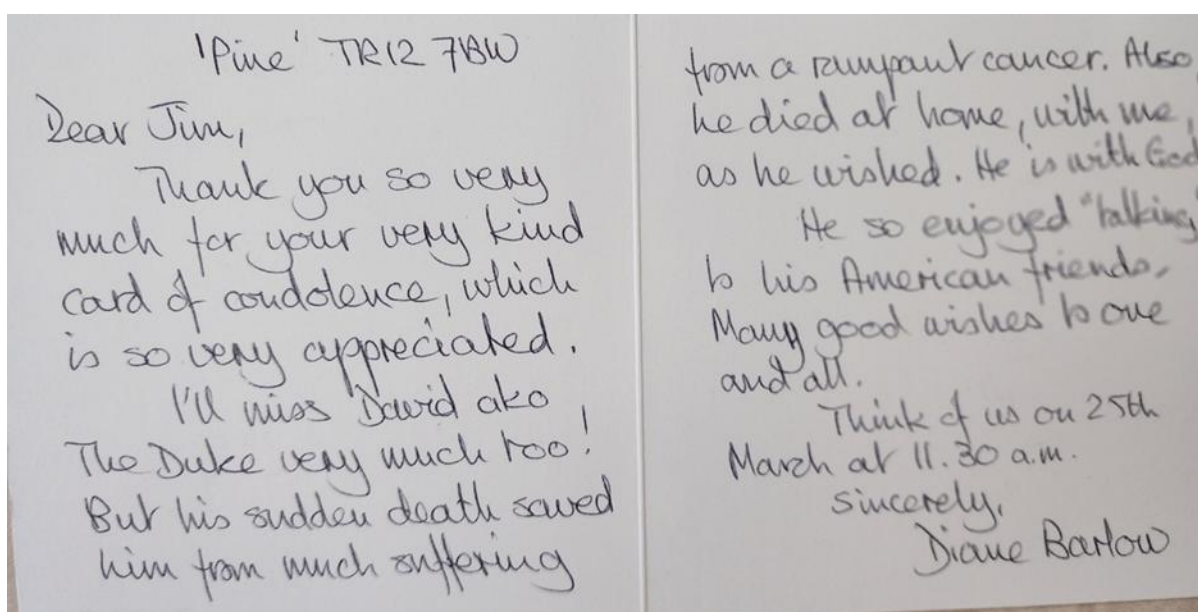 'Pine' TR12 7BW
Dear Jim,
Thank you so very
much for your very kind
card of condolence, which
is so very appreciated.
I'll miss David ako
The Duke very much too!
But his sudden death saved
him from much suffering
from a rampant cancer. Also,
he died at home, with me,
as he wished. He is with God
He so enjoyed "talking"
to his American friends.
Many good wishes to one
and all.
Think of us on 25th
March at 11.30 a.m.
Sincerely,
Diane Barlow